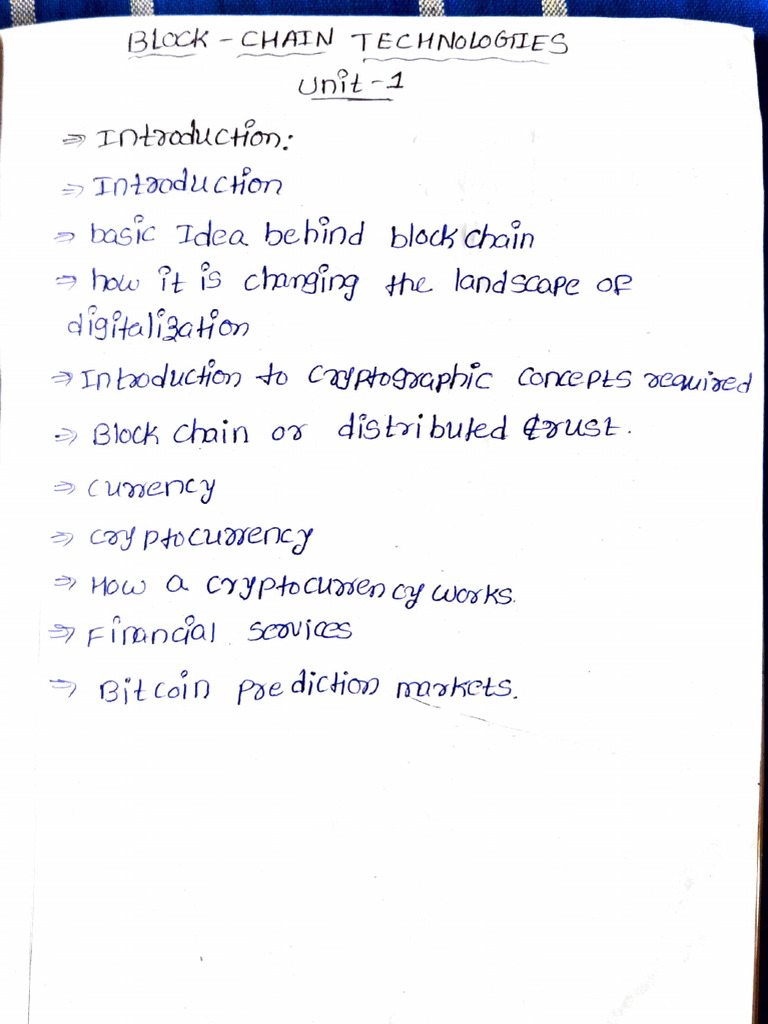 BLOCK - CHAIN TECHNOLOGIES
Unit - 1
⇒ Introduction:
⇒ Introduction
⇒ basic Idea behind block chain
⇒ how it is changing the landscape of
digitalization
⇒ Introduction to cryptographic concepts required
⇒ Block chain or distributed trust.
⇒ currency
⇒ cryptocurrency
⇒ How a cryptocurrency works.
⇒ Financial services
⇒ Bitcoin prediction markets.